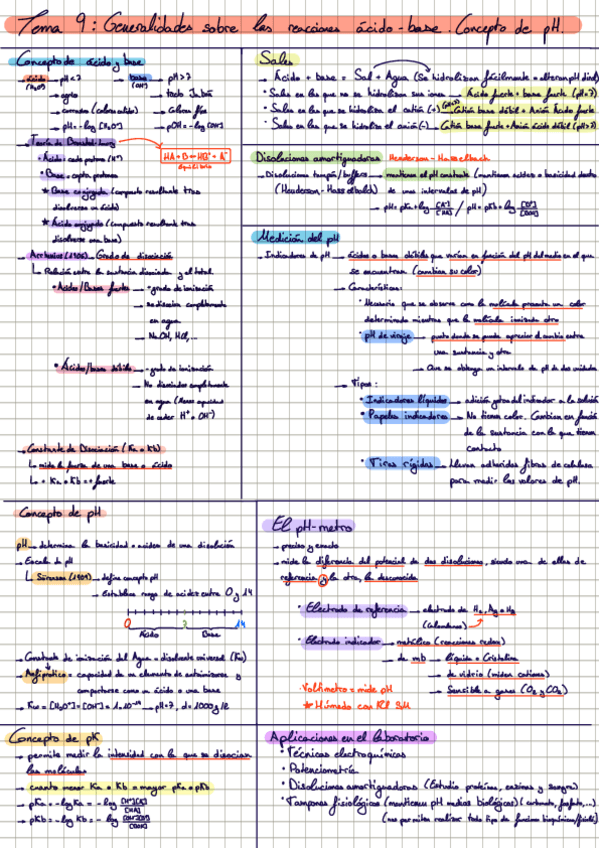 Tema 9: Generalidades sobre las reacciones ácido-base. Concepto de pH.
Concepto de ácido y base
ácido → pH<7
(H₃O⁺)
→ agrio
→ pH = -log [H₃O⁺]
base → pH>7
(OH⁻)
→ tacto jabón
→ pOH = -log [OH⁻]
HA + B ⇌ HB⁺ + A⁻
• Ácido: cede protón (H⁺)
• Base: capta protones
★ Base conjugada (compuesto resultante tras
disolverse un ácido)
★ Ácido conjugado (compuesto resultante tras
disolverse una base)
→ Arrhenius Grado de disociación
↳ Relación entre la sustancia disociada y el total
• Ácidos/Bases fuertes → + grado de ionización
→ Se disocian completamente
en agua
→ NaOH, HCl,...
• Ácido/base débiles → - grado de ionización
→ No disocian completamente
en agua (Menos capacidad
de ceder H⁺ o OH⁻)
→ Constante de Disociación (Ka o Kb)
↳ mide la fuerza de una base o ácido
↳ + Ka o Kb = + fuerte
Sales
→ Ácido + base = Sal + Agua (Se hidrolizan fácilmente = alteran pH disol)
• Sales en las que no se hidrolizan sus iones → Ácido fuerte + base fuerte (pH=7)
• Sales en las que se hidroliza el catión (+) → Catión base débil + Anión Ácido fuerte
• Sales en las que se hidroliza el anión (-) →
Disoluciones amortiguadoras Henderson-Hasselbalch
→ Disoluciones tampón/buffers → mantienen el pH constante (mantienen acidez o basicidad
(Henderson-Hasselbalch) de una intervalos de pH)
Medición del pH
→ Indicadores de pH → ácidos o bases débiles que varían en función del pH del medio en el que
se encuentran (cambian su color)
→ Características:
• Necesario que se observe como la molécula presenta un color
determinado mientras que la molécula ionizada otro
• pH de viraje → punto donde se puede apreciar el cambio entre
una sustancia y otra
→ Que se obtenga un intervalo de pH de dos unidades
→ Tipos:
• Indicadores líquidos → adición gotas del indicador a la solución
• Papeles indicadores → No tienen color. Cambian en función
de la sustancia con la que tienen
contacto
• Tiras rígidas → Llevan adheridas fibras de celulosa
para medir los valores de pH.
Concepto de pH
pH → determina la basicidad o acidez de una disolución
→ Escala de pH
↳ Sörensen (1909) → define concepto pH
→ Establece rango de acidez entre 0 y 14
0 7 14
Ácido Base
→ Constante de ionización del Agua = disolvente universal (Kw)
→ Anfiprótico = capacidad de un elemento de
comportarse como un ácido o una base
→ Kw = [H₃O⁺]·[OH⁻] = 1·10⁻¹⁴ → pH=7,
El pH-metro
→ preciso y exacto
→ mide la diferencia del potencial de dos disoluciones, siendo una de ellas de
referencia y la otra, la desconocida
• Electrodo de referencia → electrodo de H₂, Ag o Hg
(Calomelanos)
• Electrodo indicador → metálico (reacciones redox)
→ de mb → líquida o Cristalina
→ de vidrio (miden cationes)
→ Sensible a gases (O₂ y CO₂)
• Voltímetro = mide pH
★ Húmedo con KCl 3M
Concepto de pK
→ permite medir la intensidad con la que se disocian
las moléculas
→ cuanto menor Ka o Kb = mayor pKa o pKb
→ pKa = -log Ka = -log
→ pKb = -log Kb = -log
Aplicaciones en el laboratorio
• Técnicas electroquímicas
• Potenciometría
• Disoluciones amortiguadoras (Estudio proteínas, enzimas y sangre)
• Tampones fisiológicos (mantienen pH medios biológicos) (carbonato, fosfato,...)
(nos permiten realizar todo tipo de funciones